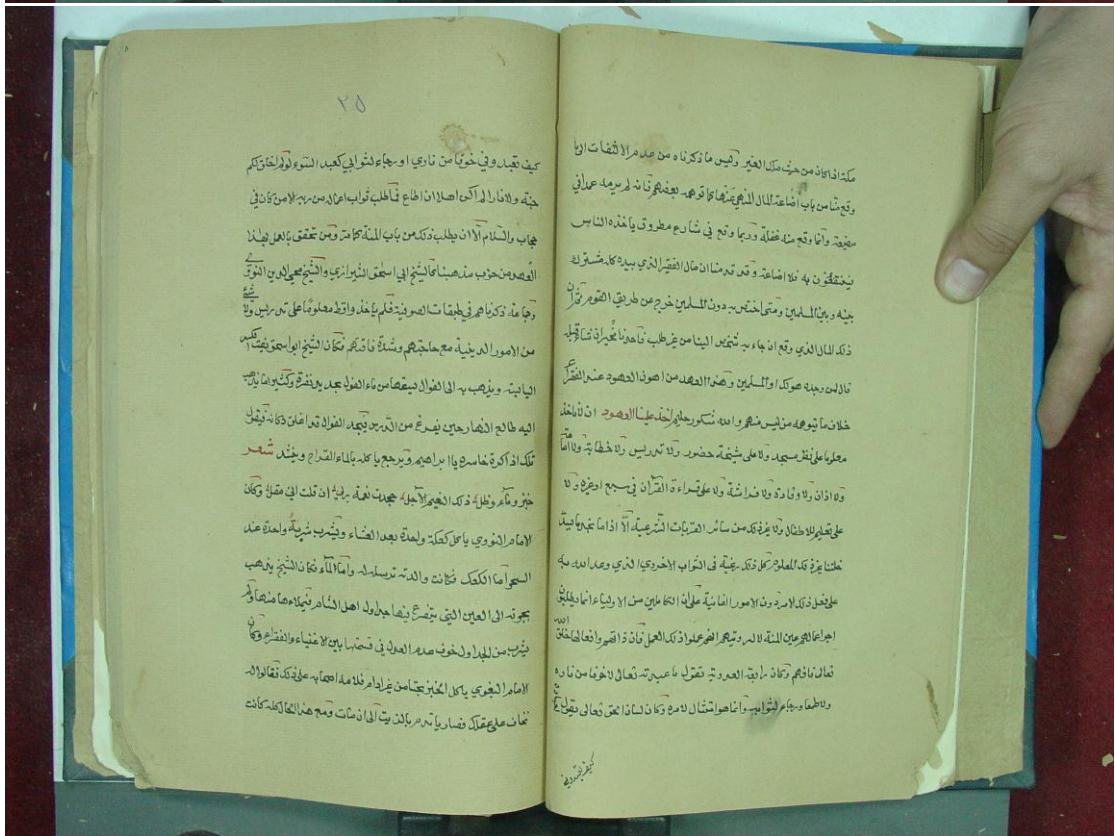 مكة اذا كان من حرث ملك الغير وليس ما ذكرناه من عدم الالتفات الى ما
وقع منا من باب اضاعة المال المنهي عنها كما توهمه بعضهم فانه لم يرمه عمدا في
مضيعة وانما وقع منه غفلة وربما وقع في شارع مطروق ياخذه الناس
ينتفعون به فلا اضاعة وقد قدمنا ان مال الفقير الذي بيده كله مشترك
بينه وبين المسلمين ومتى اختص به دون المسلمين خرج عن طريق القوم ثم ان
ذلك المال الذي وقع ان جاء به شخص الينا من غير طلب فاحدنا مخير ان شاء قبله
قال لمن وجده هو لك او للمسلمين وهذا العهد من اهون العهود عند الفقراء
خلاف ما يتوهمه من ليس منهم والله شكور حليم اخذ علينا العهود ان لا ناخذ
معلوما على نظر مسجد ولا على مشيخة حضور ولا تدريس ولا خطابة ولا امامة
ولا اذان ولا وقادة ولا فراشة ولا على قراءة القرآن في سبع او غيره ولا
على تعليم للاطفال ولا غير ذلك من سائر القربات الشرعية الا اذا ما
ذلك المعلوم كل ذلك رغبة في الثواب الاخروي الذي وعد الله به
على فعل ذلك الامر دون الامور الفانية على ان الكاملين من الاولياء انما يطلبون
اجر اعمالهم عين المنة لا لرؤيتهم انهم عملوا ذلك العمل فان ذواتهم وافعالهم خلق الله
تعالى فافهم وكانت رابعة العدوية تقول ما عبدته تعالى لا خوفا من ناره
ولا طمعا ورجاء لثوابه وانما هو امتثال لامره وكان لسان الحق تعالى يقول
كيف تعبدوني
٢٥
كيف تعبدوني خوفا من ناري او رجاء لثوابي كعبد السوء لو لم اخلق لكم
جنة ولا نارا لم اكن اصلا ان اطاع فما طلب ثواب اعماله من ربه الا من كان في
حجاب والسلام الا ان يطلب ذلك من باب المنة كما مر وممن تحقق بالعمل بهذا
العهد من حزب مذهبنا الشيخ ابي اسحق الشيرازي والشيخ محيي الدين النووي
وجماعة ذكرناهم في طبقات الصوفية فلم ياخذوا قط معلوما على تدريس ولا شيء
من الامور الدينية مع حاجتهم وشدة فاقتهم فكان الشيخ ابو اسحق
اليابسة ويذهب به الى الفوال ليسقها من ماء الفول بعد ان يفته وكثيرا ما يذهب
اليه طالع النهار حين يفرغ من الدرس فيجد الفوال قد اغلق دكانه فيقول
تلك اذا كرة خاسرة يا ابراهيم ويرجع ياكله بالماء القراح وينشد شعر
خبز وماء وظل ذلك النعيم الاجل جحدت نعمة ربي ان قلت اني مقل وكان
الامام النووي ياكل كعكة واحدة بعد العشاء ويشرب شربة واحدة عند
السحر اما الكعك فكانت والدته ترسله له واما الماء فكان الشيخ يذهب
بجرته الى العين التي يتفرع منها جداول اهل الشام فيملاءها منها ولم
يشرب من الجداول خوف عدم العدل في قسمتها بين الاغنياء والفقراء وكان
الامام البغوي ياكل الخبز بحتا من غير ادام فلامه اصحابه على ذلك فقالوا له
نخاف على عقلك فصار يأتدم بالزيت الى ان مات ومع هذا الحال كله كانت